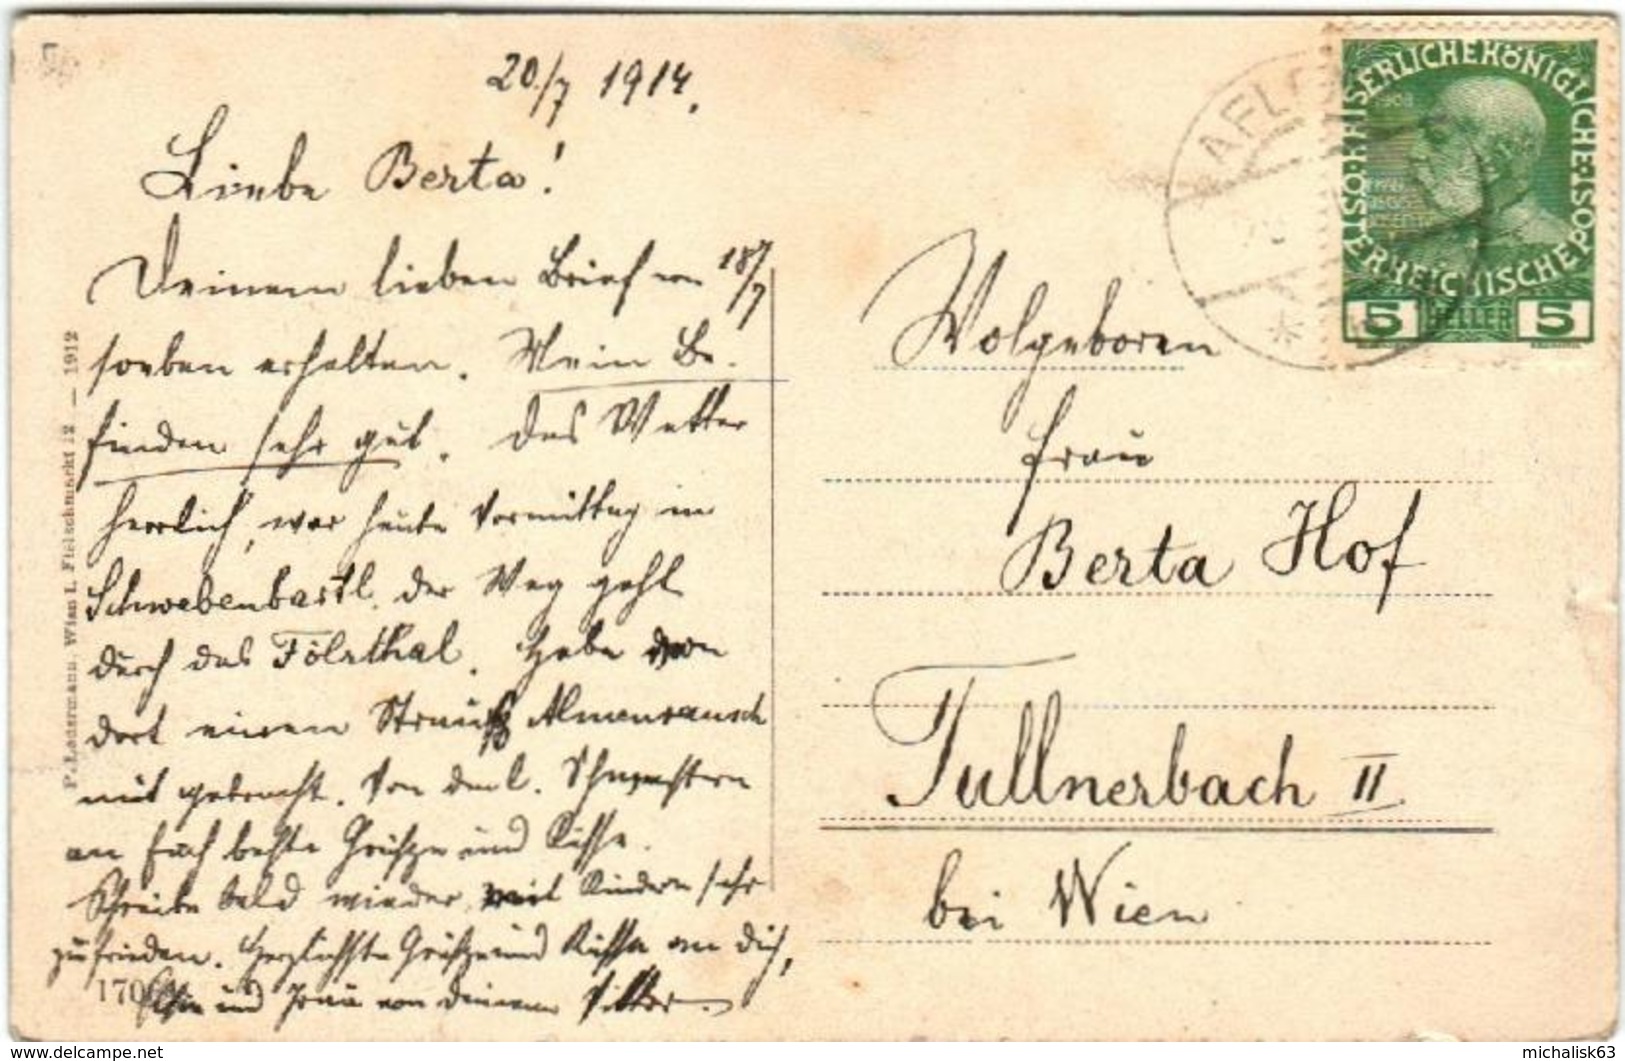 20./7 1914.
Liebe Berta!
Deinen lieben Brief von 18/7
soeben erhalten. Mein Be-
finden sehr gut. Das Wetter
herrlich, war heute Vormittag im
Schwabenbartl. der Weg geht
durch das Fölzthal. Habe von
dort einen Strauß Almenrausch
mit gebracht. Von den l. Schwestern
an Euch beste Grüße und Küsse.
Schreibe bald wieder, mit Kindern sehr
zufrieden. Herzlichste Grüße und Küsse an Dich,
und von Deinem
1706
P. Ledermann, Wien I., Fleischmarkt 12 — 1912
AFL
KAISERLICHE KÖNIGLICHE ÖSTERREICHISCHE POST
1908
5 HELLER 5
Wolgeboren
Frau
Berta Hof
Tullnerbach II
bei Wien
www.delcampe.net
michalisk63